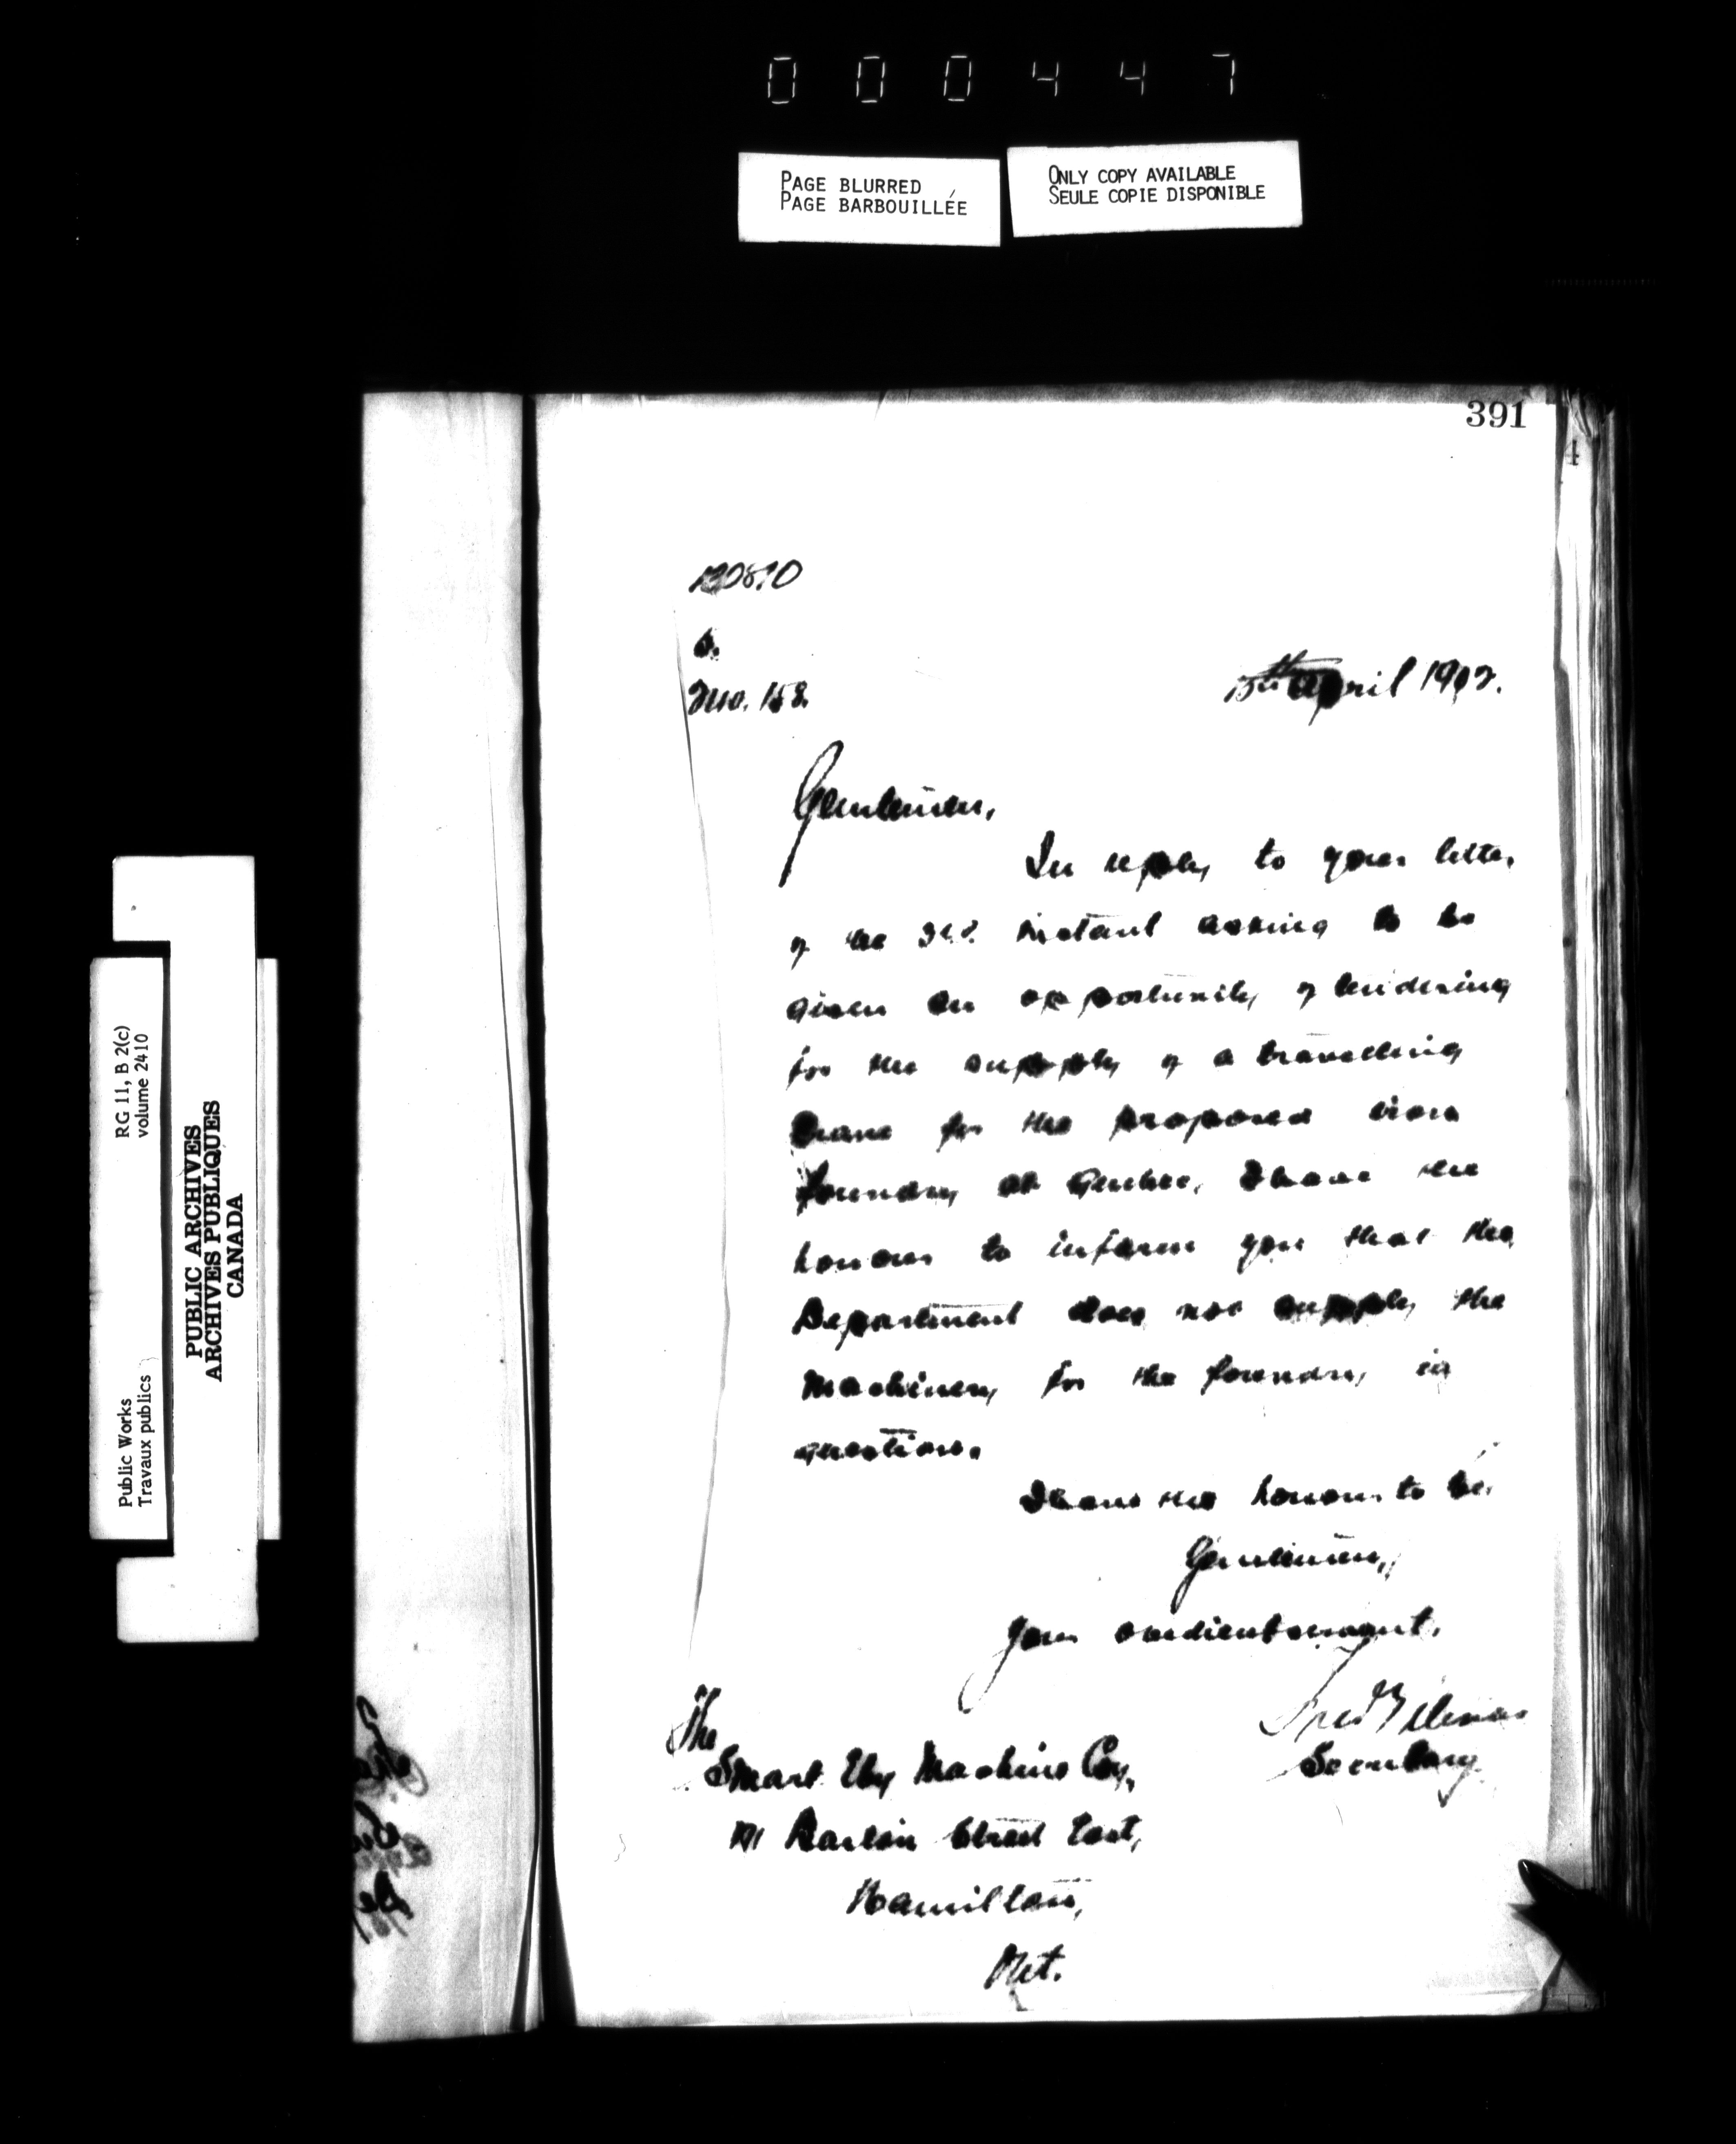 000447
PAGE BLURRED
PAGE BARBOUILLÉE
ONLY COPY AVAILABLE
SEULE COPIE DISPONIBLE
391
4
15th April 1902.
Gentlemen,
In reply to your letter
of the instant asking to be
given an opportunity of tendering
for the supply of a travelling
Crane for the proposed iron
foundry at Quebec, I have the
honour to inform you that the
Department does not supply the
Machinery for the foundry in
question.
I have the honour to be,
Gentlemen,
Your obedient servant,
Fred Gelinas
Secretary.
The
Smart Eby Machine Coy,
Barton Street East,
Hamilton,
Ont.
RG 11, B 2(c)
volume 2410
Public Works
Travaux publics
PUBLIC ARCHIVES
ARCHIVES PUBLIQUES
CANADA